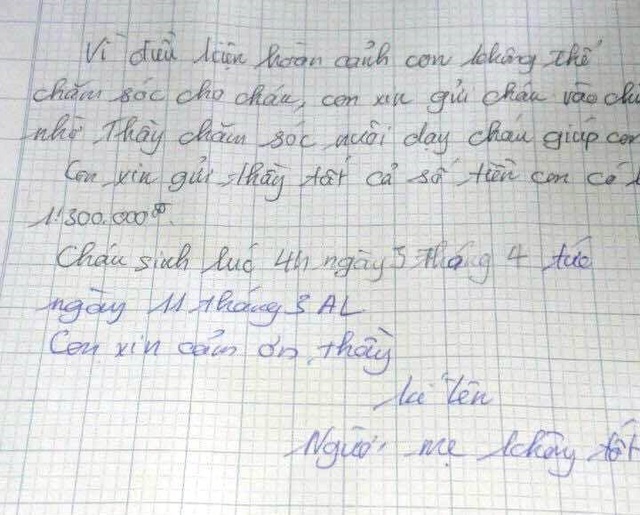 Vì điều kiện hoàn cảnh con không thể
chăm sóc cho cháu, con xin gửi cháu vào chù
nhờ Thầy chăm sóc nuôi dạy cháu giúp con
Con xin gửi thầy tất cả số tiền con có
1.300.000đ.
Cháu sinh lúc 4h ngày 5 tháng 4 tức
ngày 11 tháng 3 AL
Con xin cảm ơn thầy
kí tên
Người mẹ không tốt